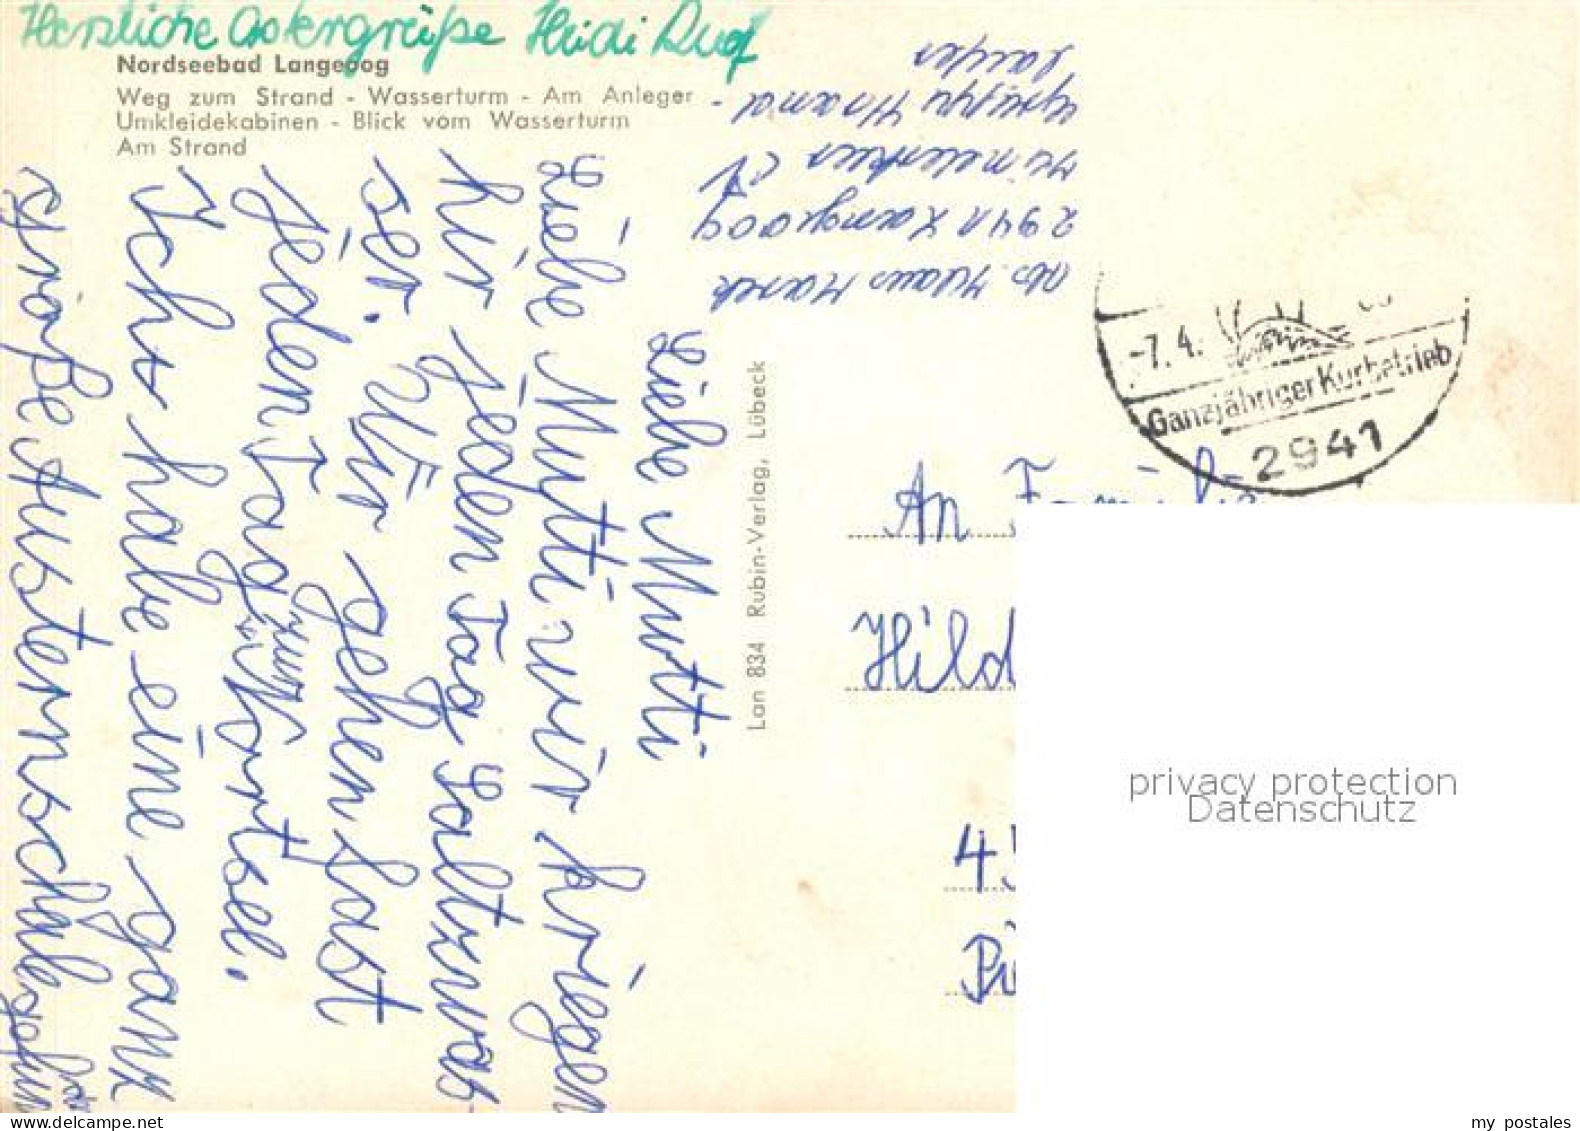 Herzliche Ostergreiße Heidi Ruof
Nordseebad Langeoog
Weg zum Strand - Wasserturm - Am Anleger -
Umkleidekabinen - Blick vom Wasserturm
Am Strand
Abs. Klaus
2941 Langeoog
Gruppe
Liebe Mutti
Liebe Mutti wir kriegen
hir jeden Tag Saltzwas
ser. Wir gehen fast
jeden Tag zum Wortsel.
Ich habe eine ganz
große Austernschale gefun
Lan 834 Rubin-Verlag, Lübeck
-7. 4.
Ganzjähriger Kurbetrieb
2941
An Familie
Hild
privacy protection
Datenschutz
www.delcampe.net
my_postales